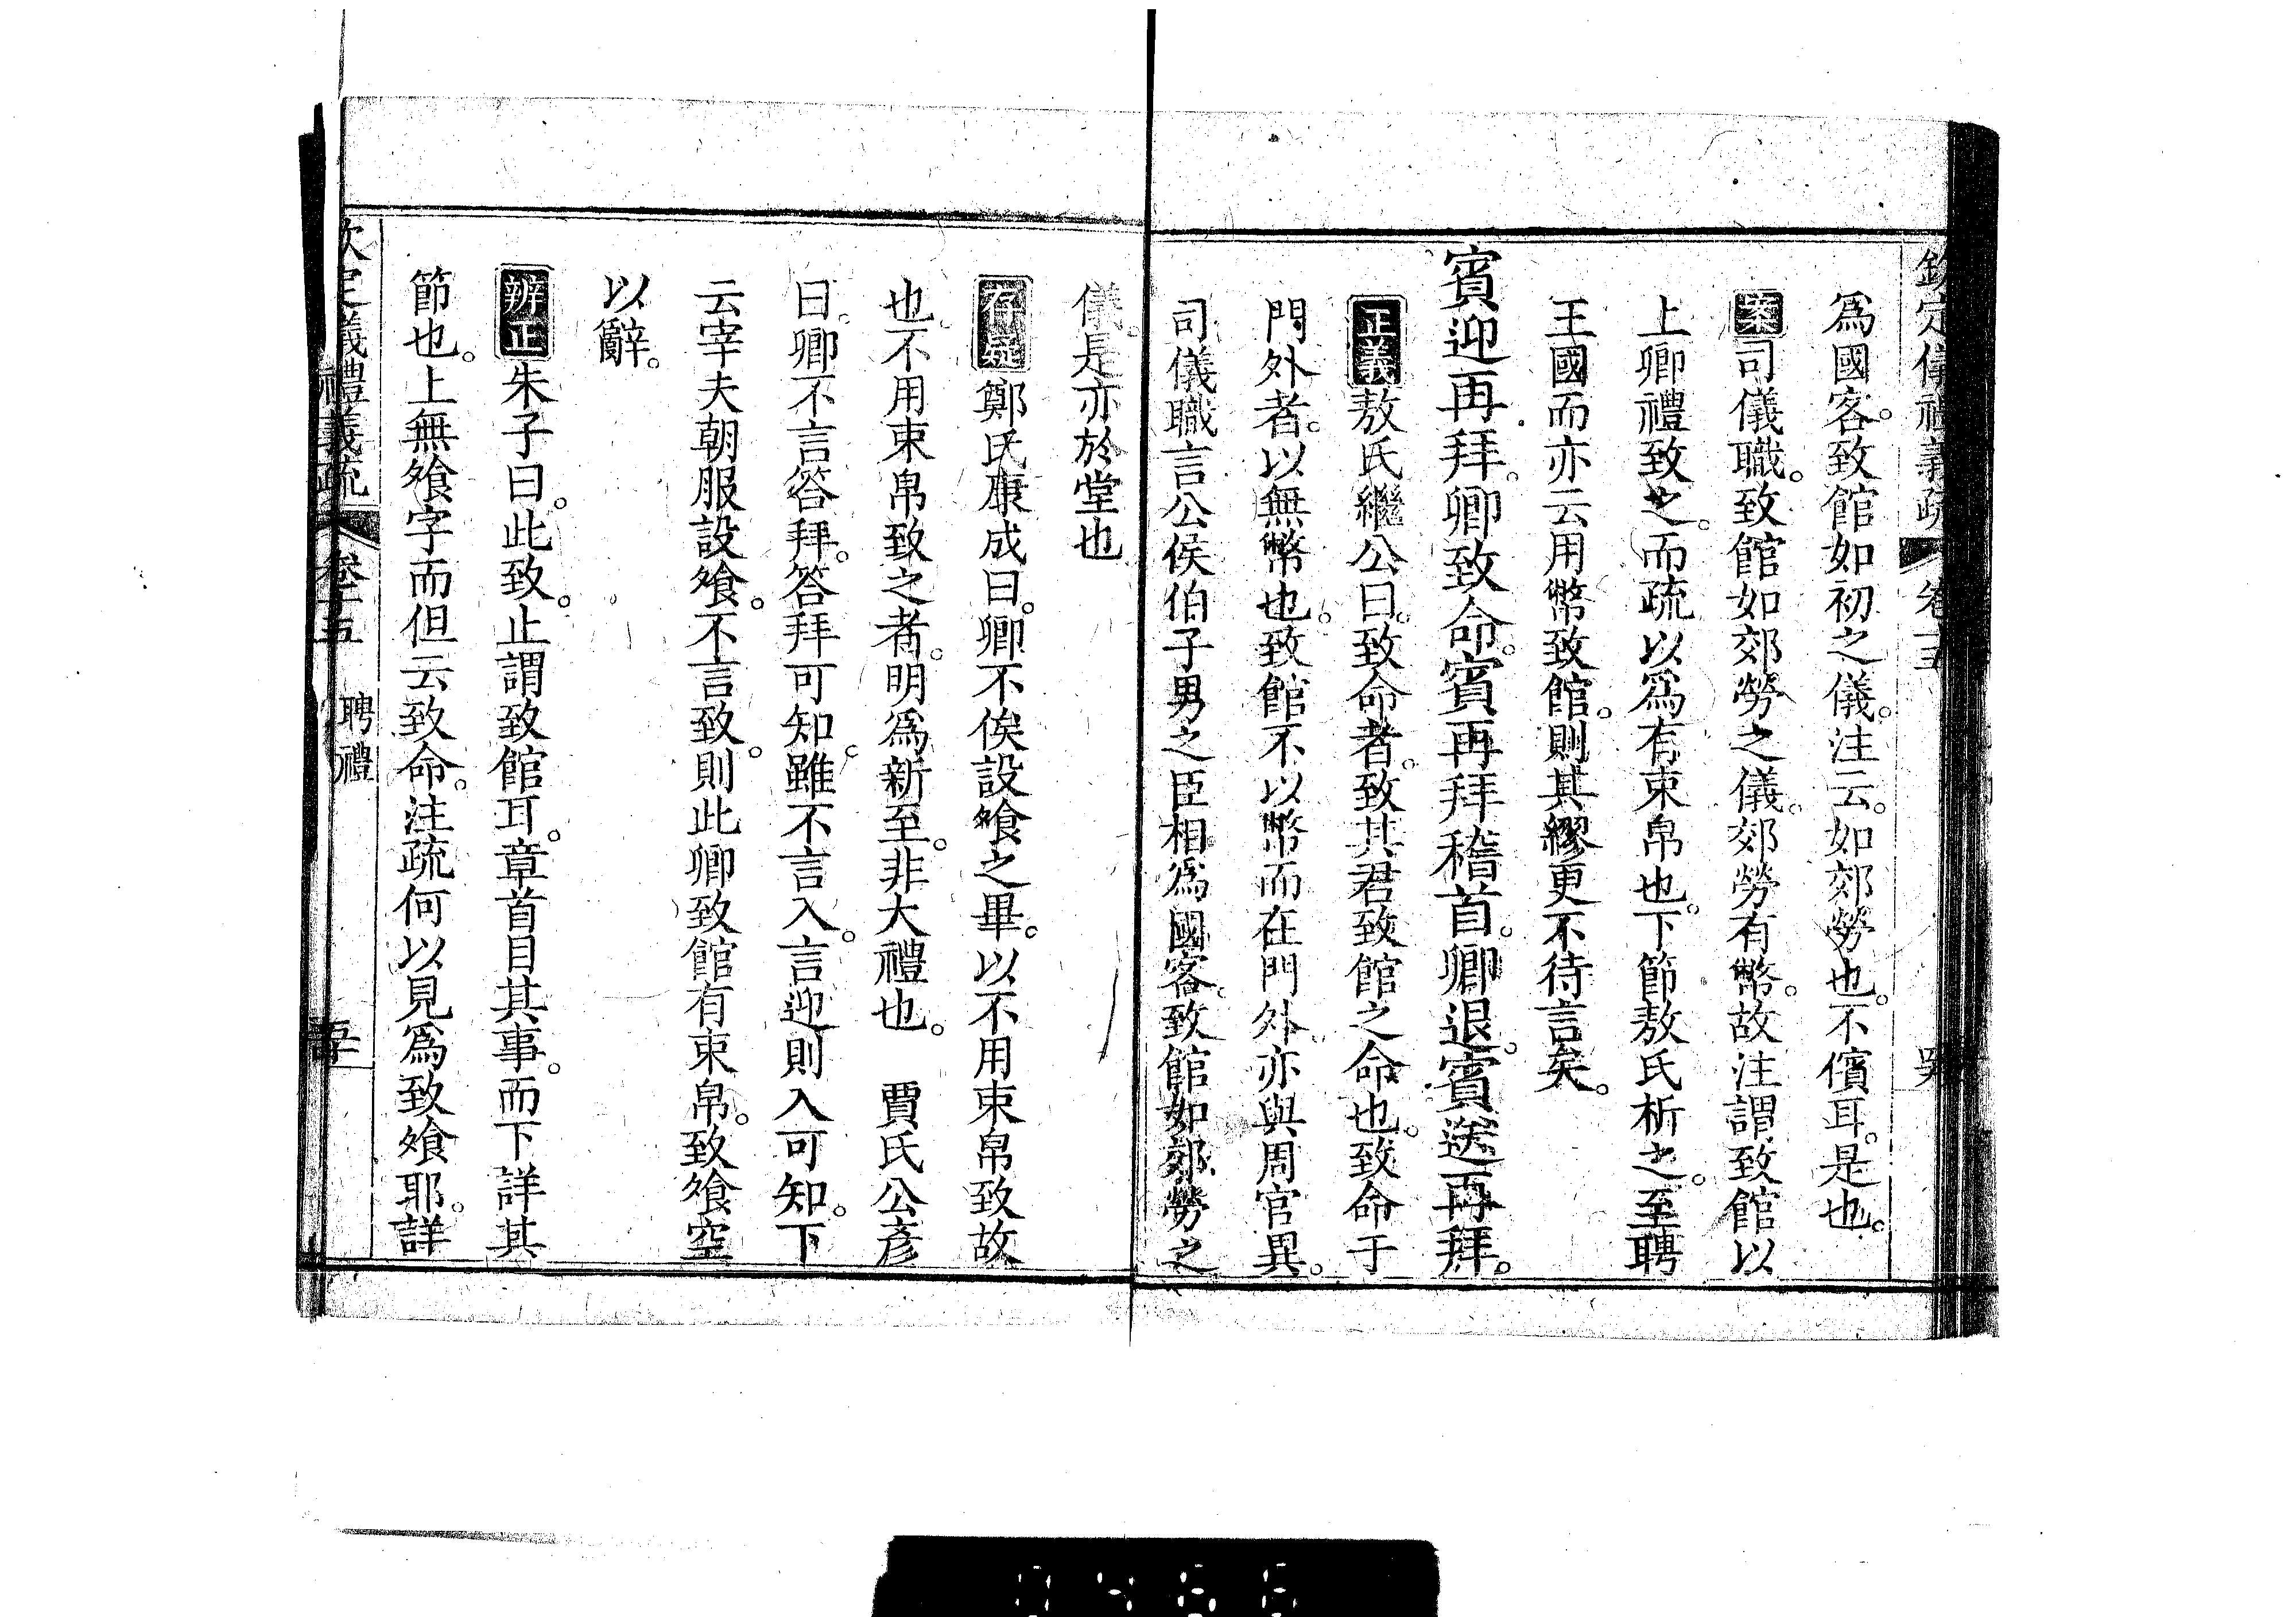 欽定儀禮義疏 卷十五
爲國客。致館如初之儀。注云。如郊勞也。不儐耳。是也。
案司儀職。致館如郊勞之儀。郊勞有幣。故注謂致館以
上卿禮致之。而疏以爲有束帛也。下節敖氏析之。至聘
王國而亦云用幣致館。則其繆更不待言矣。
賓迎再拜。卿致命。賓再拜稽首。卿退。賓送再拜。
正義敖氏繼公曰。致命者。致其君致館之命也。致命于
門外者。以無幣也。致館不以幣而在門外。亦與周官異。
司儀職言公侯伯子男之臣相爲國客。致館如郊勞之
儀。是亦於堂也
存疑鄭氏康成曰。卿不俟設飧之畢。以不用束帛致故
也。不用束帛致之者。明爲新至。非大禮也。 賈氏公彥
曰。卿不言答拜。答拜可知。雖不言入。言迎則入可知。下
云宰夫朝服設飧。不言致。則此卿致館有束帛。致飧空
以辭。
辨正朱子曰。此致。止謂致館耳。章首目其事。而下詳其
節也。上無飧字而但云致命。注疏何以見爲致飧耶。詳
欽定儀禮義疏 卷十五 聘禮